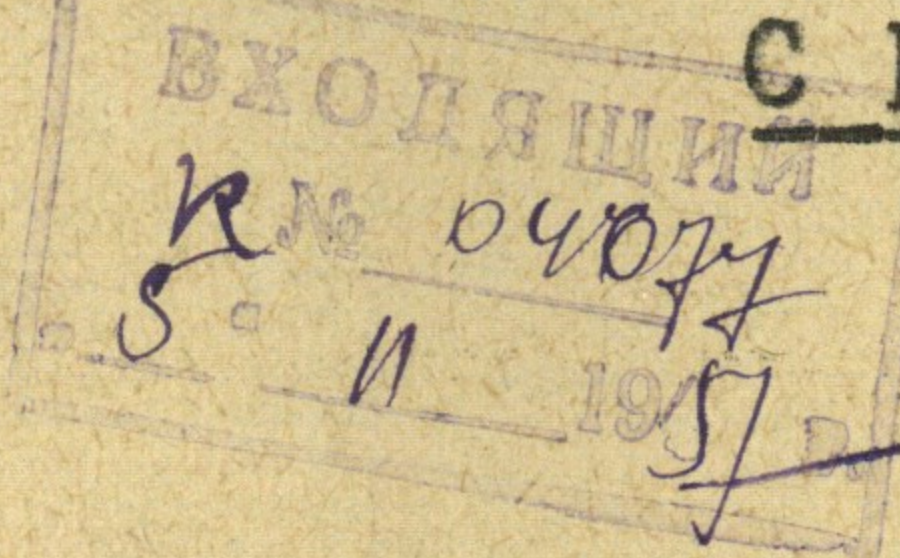 С
ВХОДЯЩИЙ
К № 04077
"5" 11 1957 г.